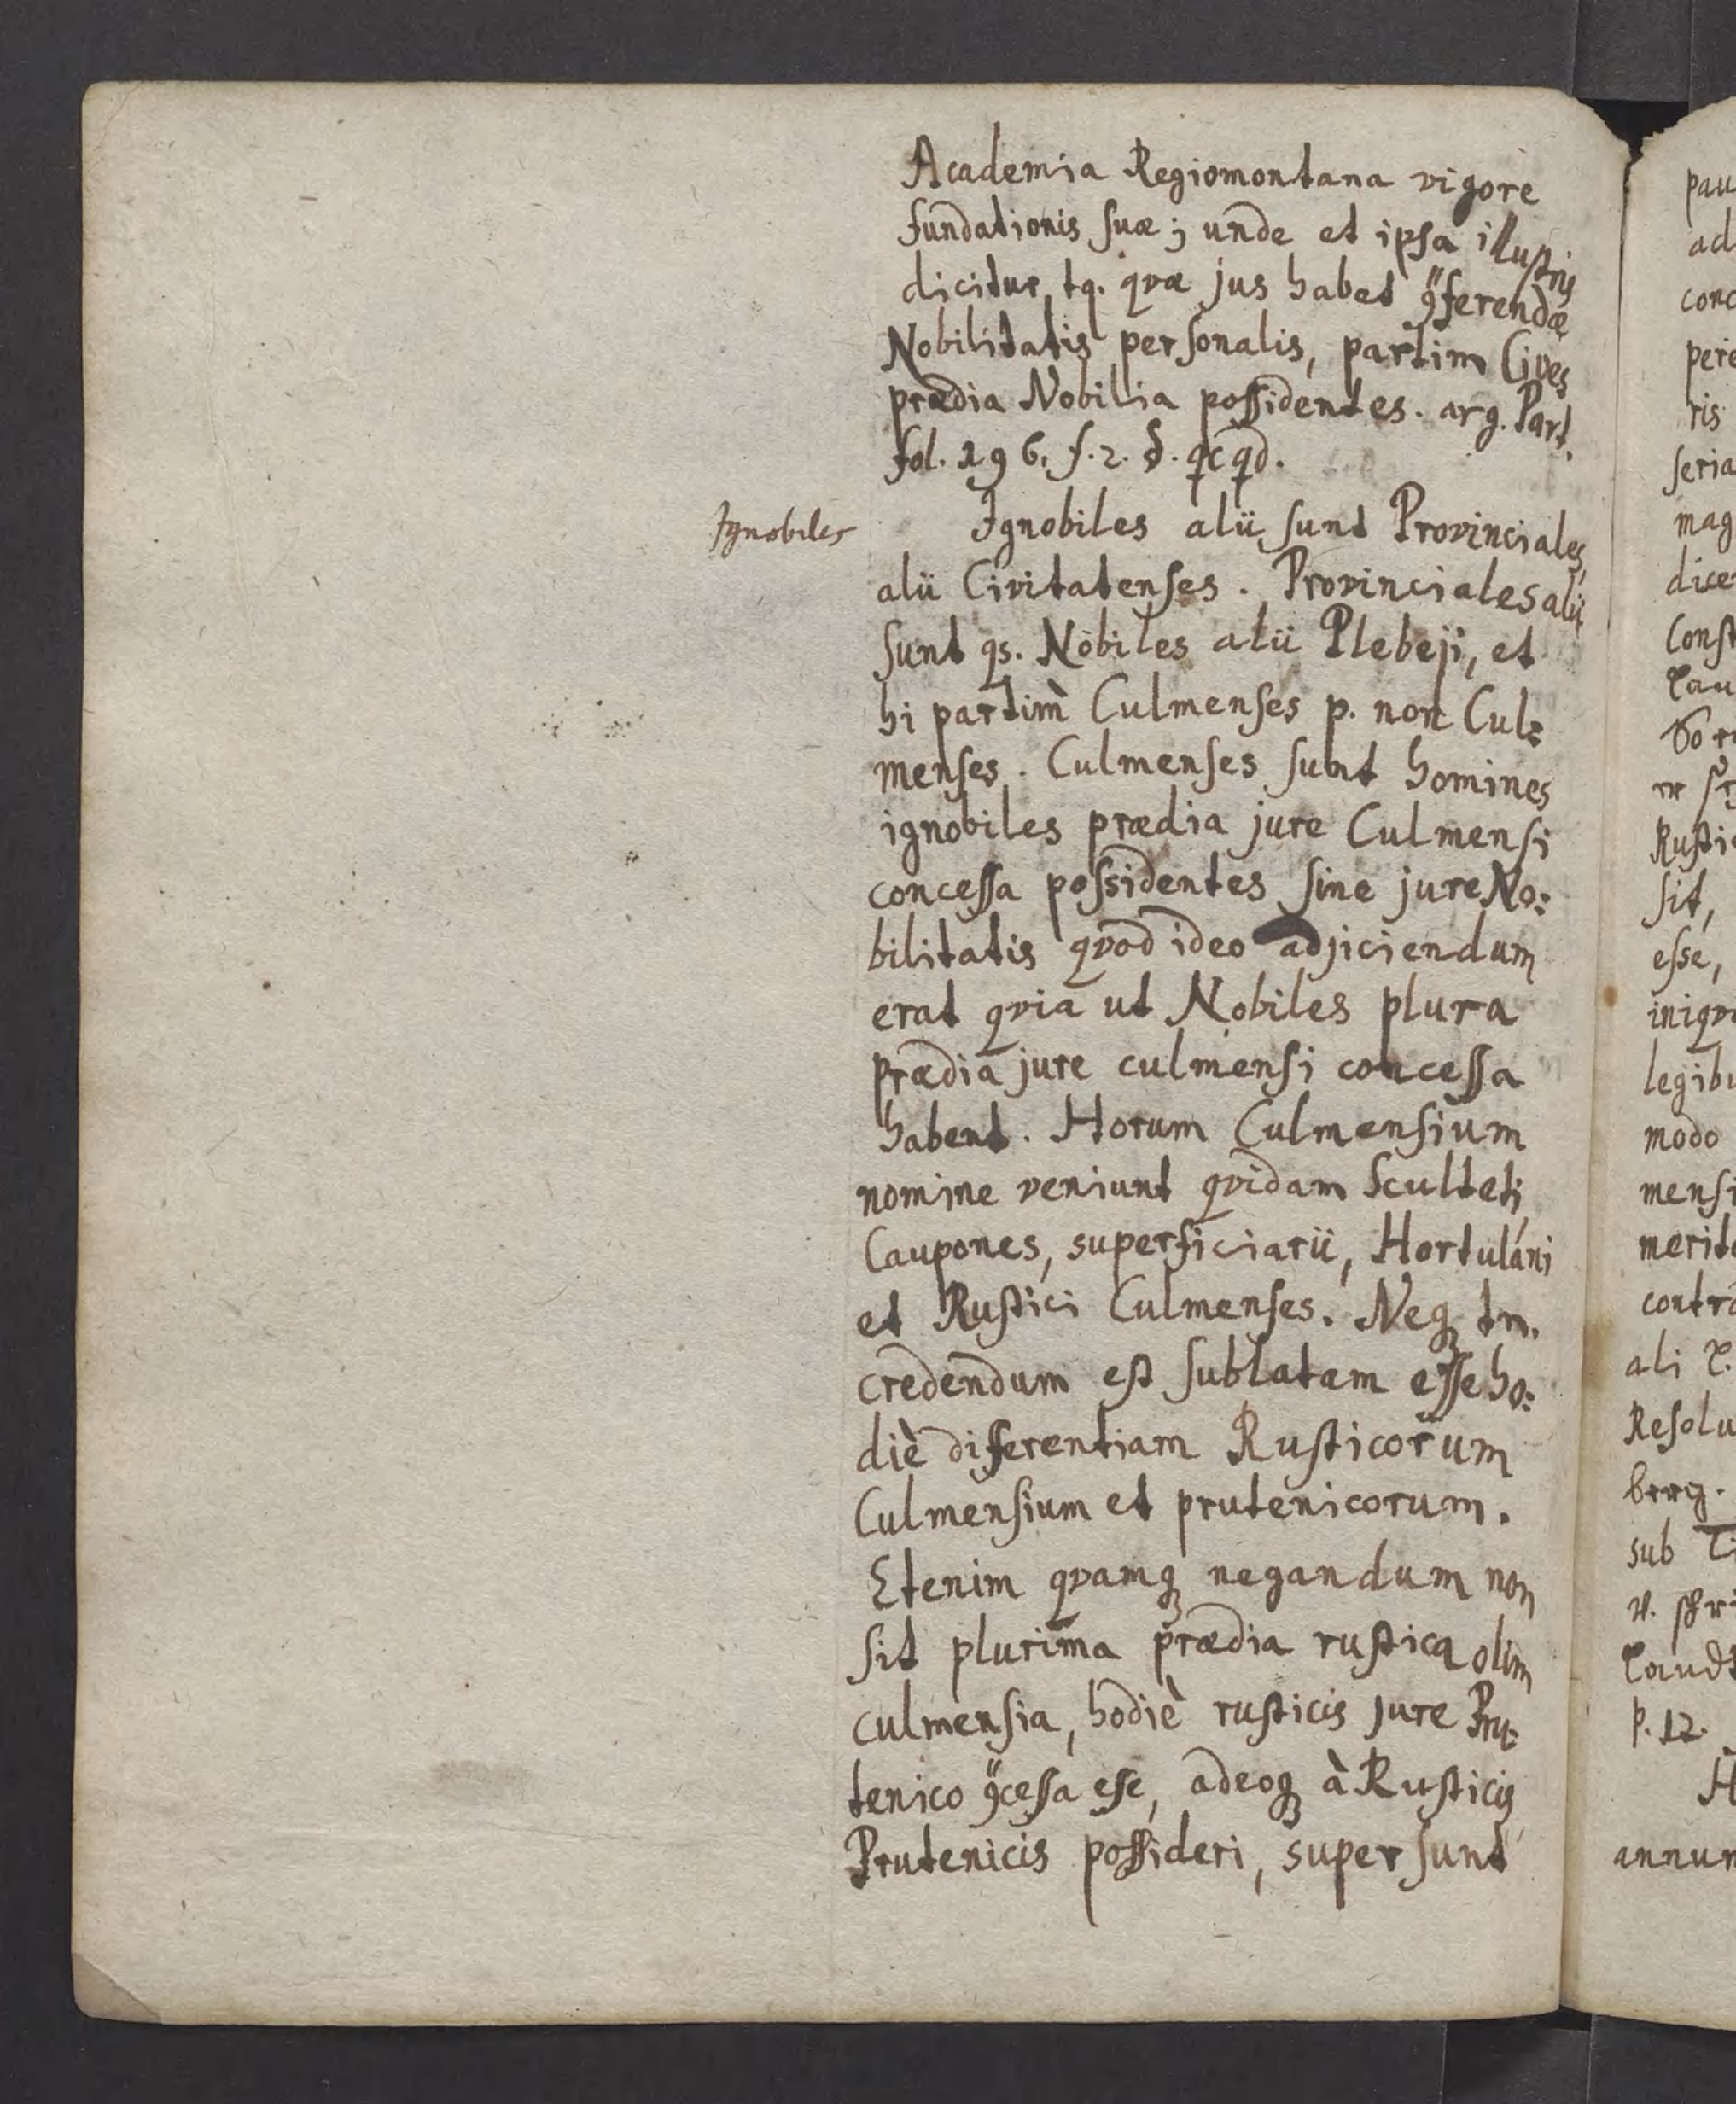 Academia Regiomontana vigore
fundationis suæ; unde et ipsa illustris
dicitur, tq. qvæ jus habet ꝯferendæ
Nobilitatis personalis, partim Cives
prædia Nobilia possidentes. arg. Part.
fol. 196. f. 2. §.
Ignobiles
Ignobiles alii sunt Provinciales,
alii Civitatenses. Provinciales alii
sunt qs. Nobiles alii Plebeji, et
hi partim Culmenses p. non Cul=
menses. Culmenses sunt homines
ignobiles prædia jure Culmensi
concessa possidentes sine jure No=
bilitatis qvod ideo adjiciendum
erat qvia ut Nobiles plura
prædia jure culmensi concessa
habent. Horum Culmensium
nomine veniunt qvidam Sculteti,
Caupones, superficiarii, Hortulani
et Rustici Culmenses. Neqꝫ tn.
credendum est sublatam esse ho=
diè differentiam Rusticorum
Culmensium et prutenicorum.
Etenim qvamqꝫ negandum non
sit plurima prædia rustica olim
culmensia, hodiè rusticis jure Pru=
tenico ꝯcessa esse, adeoqꝫ à Rusticis
Prutenicis possideri, supersunt
pau
ad
conc
peri
ris
seria
mag
dice
Const
Rusti
sit,
esse,
iniqv
legibu
modo
mensi
merit
contra
ali
Resolu
berg.
sub
p. 12.
H
annum